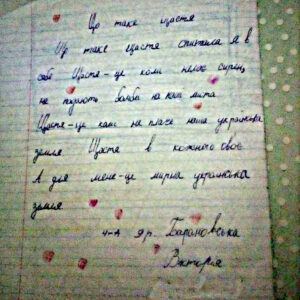 Що таке щастя
Що таке щастя спитала я в
себе Щастя-це коли немає сирен,
не падають бомби на наші міста
Щастя-це коли не плаче наша українська
земля Щастя в кожного своє
А для мене-це мирна українська
земля
4-А Барановська
Вікторія